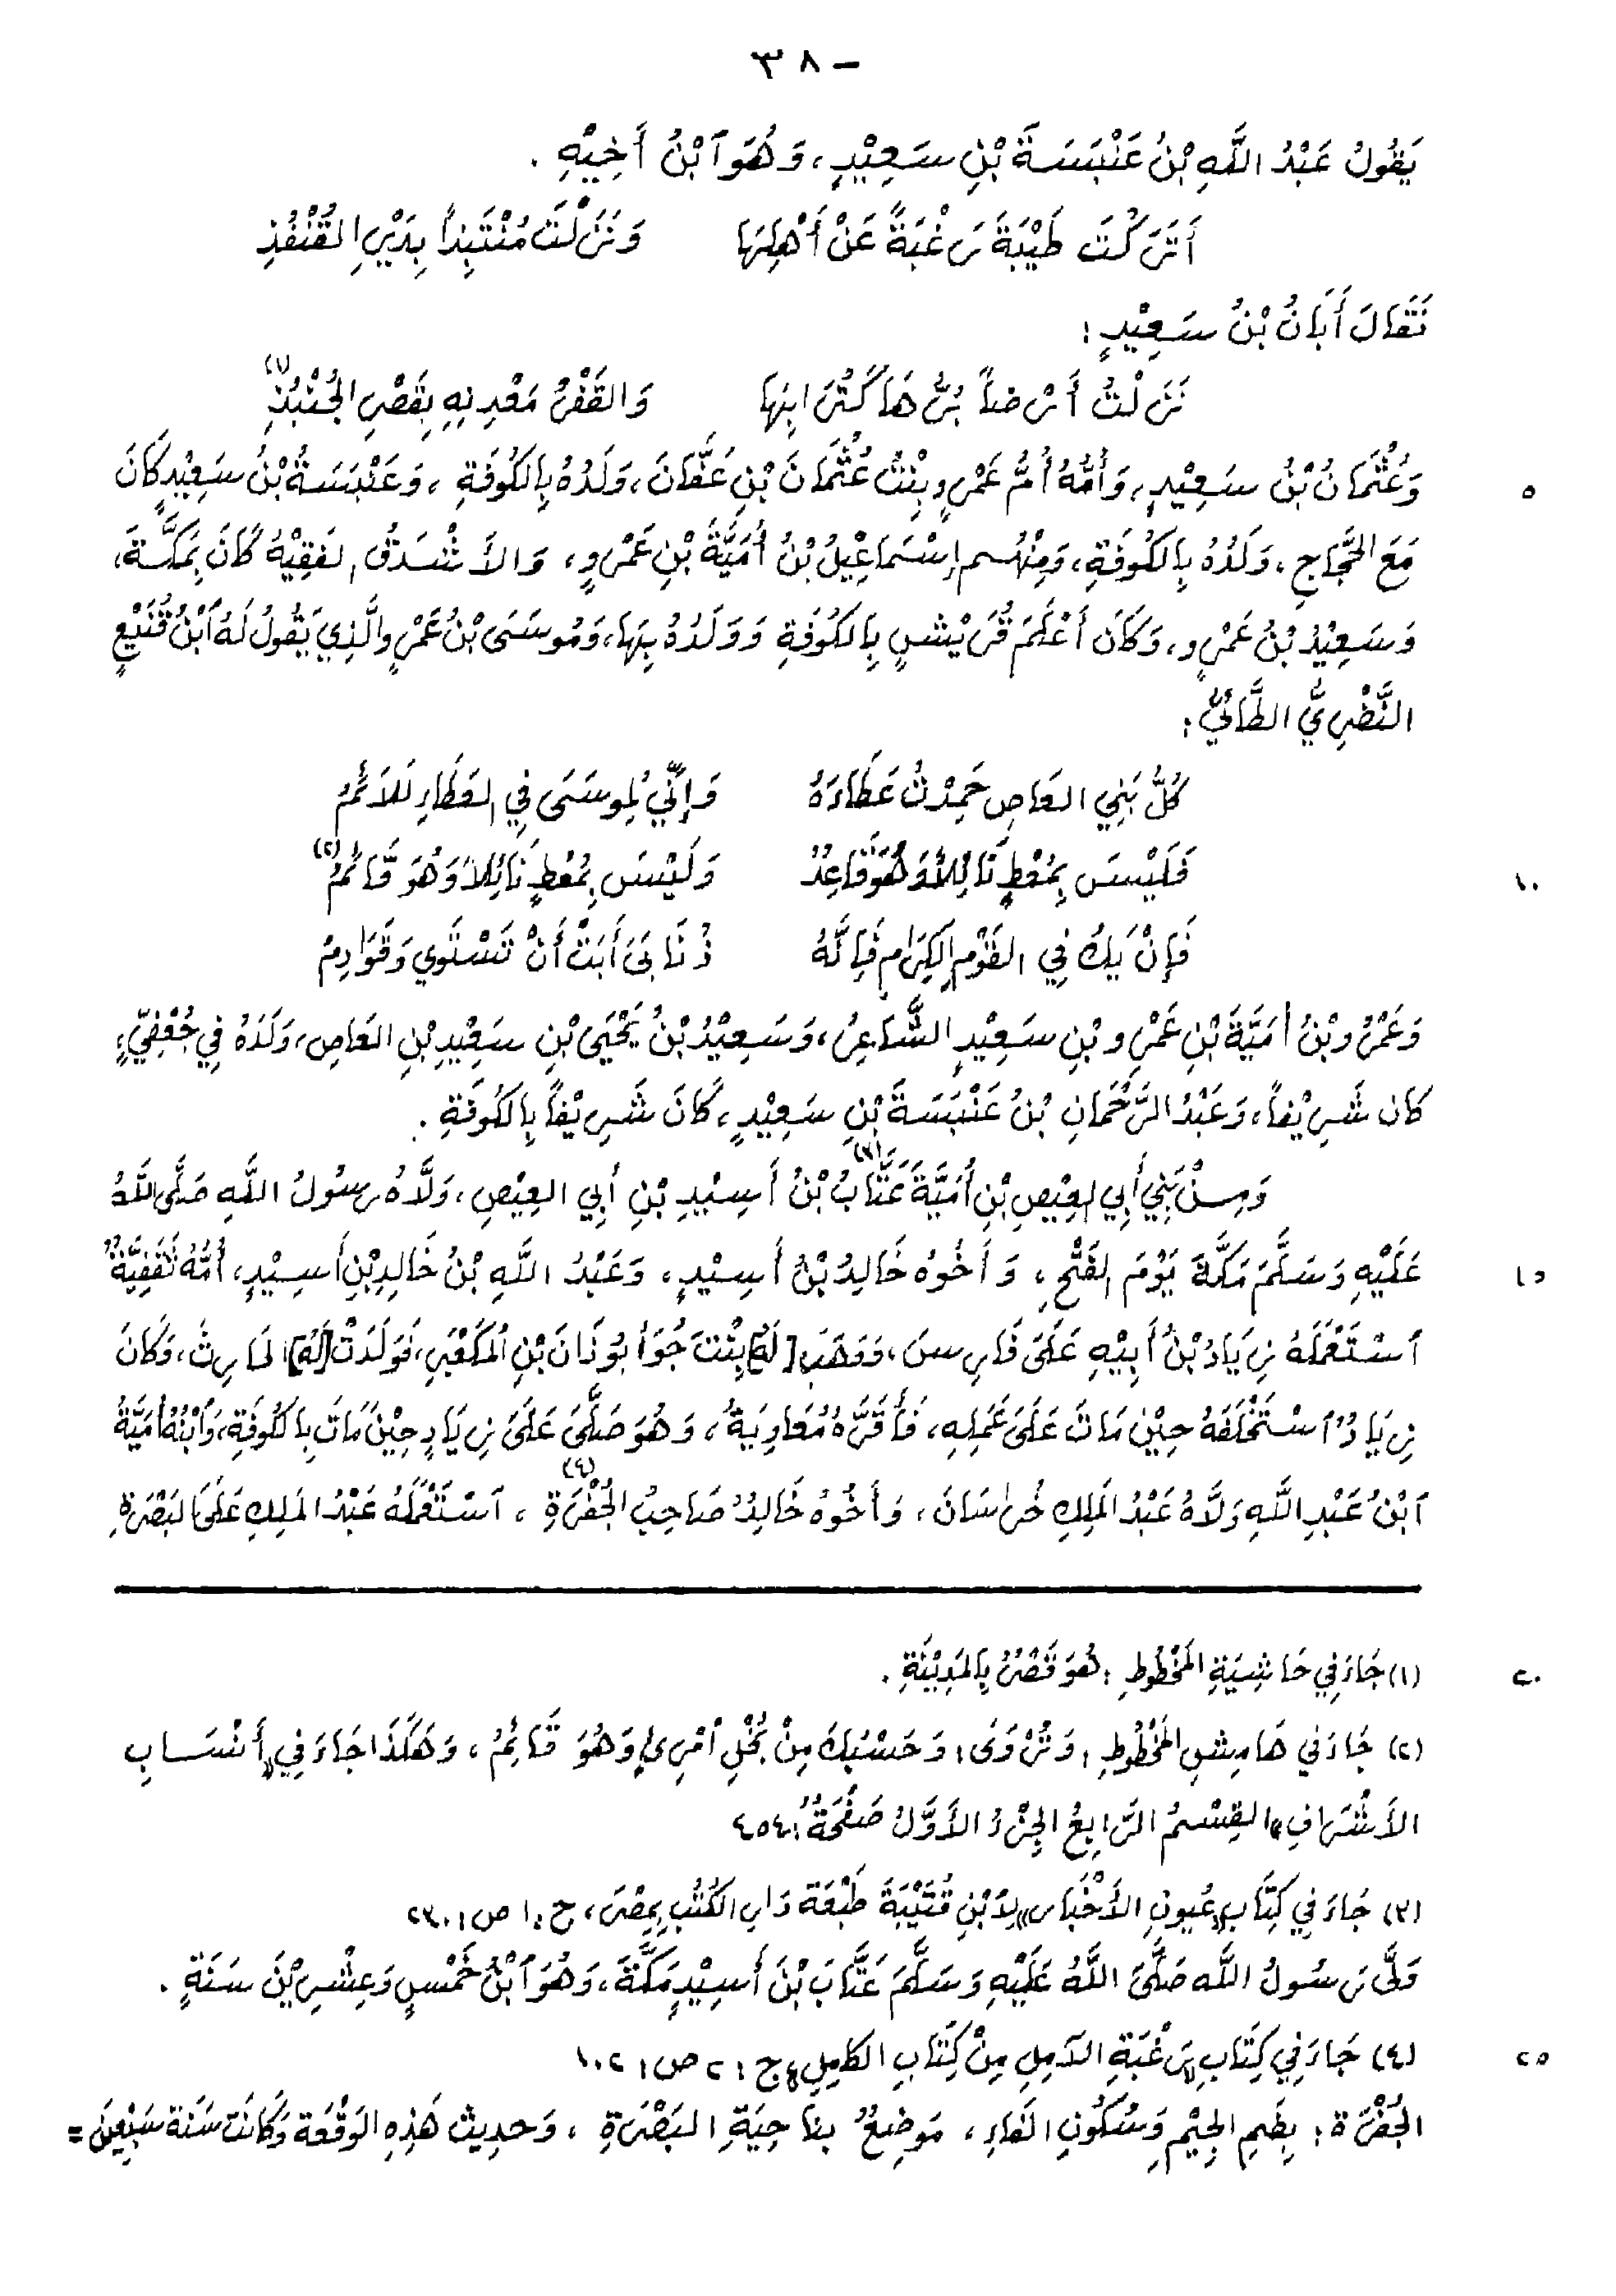 ٣٨ -
يَقُولُ عَبْدُ اللَّهِ بْنُ عَنْبَسَةَ بْنِ سَعِيْدٍ، وَهُوَ ٱبْنُ أَخِيْهِ .
أَتَرَكْتَ طَيْبَةَ رَغْبَةً عَنْ أَهْلِهَا وَنَزَلْتَ مُنْتَبِذاً بِدَيْرِ القُنْفُذِ
فَقَالَ أَبَانُ بْنُ سَعِيْدٍ :
نَزَلْتُ أَرْضاً بُرُّهَا كَتُرَابِهَا وَالفَقْرُ مَعْدِنُهِ بِقَصْرِ الجُنْبُذِ (١)
٥ وَعُثْمَانُ بْنُ سَعِيْدٍ، وَأُمُّهُ أُمُّ عَمْرٍو بِنْتُ عُثْمَانَ بْنِ عَفَّانَ، وَلَدُهُ بِالكُوفَةِ، وَعَنْبَسَةُ بْنُ سَعِيْدٍ كَانَ
مَعَ الحَجَّاجِ، وَلَدُهُ بِالكُوفَةِ، وَمِنْهُم إِسْمَاعِيْلُ بْنُ أُمَيَّةَ بْنِ عَمْرٍو، وَالأَشْدَقُ الفَقِيْهُ كَانَ بِمَكَّةَ،
وَسَعِيْدُ بْنُ عَمْرٍو، وَكَانَ أَعْلَمَ قُرَيْشٍ بِالكُوفَةِ وَوَلَدُهُ بِهَا، وَمُوسَى بْنُ عَمْرٍو الَّذِي يَقُولُ لَهُ ٱبْنُ قُنَيْعٍ
النَّضْرِيُّ الطَّائِيُّ :
كُلُّ بَنِي العَاصِ حَمِدْتُ عَطَاءَهُ وَإِنِّي لِمُوسَى فِي العَطَاءِ لَلاَئِمُ
١٠ فَلَيْسَ بِمُعْطٍ نَائِلاً وَهُوَ قَاعِدُ وَلَيْسَ بِمُعْطٍ نَائِلاً وَهُوَ قَائِمُ (٢)
فَإِنْ يَكُ فِي القَوْمِ الكِرَامِ فَإِنَّهُ ذُنَابَى أَبَتْ أَنْ تَسْتَوِي وَقَوَادِمُ
وَعَمْرُو بْنُ أُمَيَّةَ بْنِ عَمْرِو بْنِ سَعِيْدٍ الشَّاعِرُ، وَسَعِيْدُ بْنُ يَحْيَى بْنِ سَعِيْدِ بْنِ العَاصِ، وَلَدُهُ فِي جُعْفِيٍّ،
كان شَرِيْفاً، وَعَبْدُ الرَّحْمَانِ بْنُ عَنْبَسَةَ بْنِ سَعِيْدٍ، كَانَ شَرِيْفاً بِالكُوفَةِ .
وَمِنْ بَنِي أَبِي العِيْصِ بْنِ أُمَيَّةَ عَتَّابُ (٣) بْنُ أَسِيْدِ بْنِ أَبِي العِيْصِ، وَلَّاهُ رَسُولُ اللَّهِ صَلَّى اللَّهُ
١٥ عَلَيْهِ وَسَلَّمَ مَكَّةَ يَوْمَ الفَتْحِ، وَأَخُوهُ خَالِدُ بْنُ أَسِيْدٍ، وَعَبْدُ اللَّهِ بْنُ خَالِدِ بْنِ أَسِيْدٍ، أُمُّهُ ثَقَفِيَّةٌ
ٱسْتَعْمَلَهُ زِيَادُ بْنُ أَبِيْهِ عَلَى فَارِسَ، وَوَهَبَ [لَهُ] بِنْتَ جُوَا بُونَانَ بْنِ المُكَعْبَرِ، فَوَلَدَتْ [لَهُ] الحَارِثَ، وَكَانَ
زِيَادُ ٱسْتَخْلَفَهُ حِيْنَ مَاتَ عَلَى عَمَلِهِ، فَأَقَرَّهُ مُعَاوِيَةُ، وَهُوَ صَلَّى عَلَى زِيَادٍ حِيْنَ مَاتَ بِالكُوفَةِ، وَٱبْنُهُ أُمَيَّةُ
ٱبْنُ عَبْدِ اللَّهِ وَلَّاهُ عَبْدُ المَلِكِ خُرَاسَانَ، وَأَخُوهُ خَالِدُ صَاحِبُ الجُفْرَةِ (٤)، ٱسْتَعْمَلَهُ عَبْدُ المَلِكِ عَلَى البَصْرَةِ
٢٠ (١) جَاءَ فِي حَاشِيَةِ المَخْطُوطِ : هُوَ قَصْرُ بِالمَدِيْنَةِ .
(٢) جَاءَ فِي هَامِشِ المَخْطُوطِ : وَتُرْوَى : وَحَسْبُكَ مِنْ بُخْلِ ٱمْرِئٍ وَهُوَ قَائِمُ، وَهَكَذَا جَاءَ فِي «أَنْسَابِ
الأَشْرَافِ» القِسْمُ الرَّابِعُ الجُزْءُ الأَوَّلُ صَفْحَةُ : ٤٥٤
(٣) جَاءَ فِي كِتَابِ «عُيونِ الأَخْبَارِ» لِٱبْنِ قُتَيْبَةَ طَبْعَةَ دَارِ الكُتُبِ بِمِصْرَ، ج : ١ ص : ٢٣٠
وَلَّى رَسُولُ اللَّه صَلَّى اللَّهُ عَلَيْهِ وَسَلَّمَ عَتَّابَ بْنَ أَسِيْدٍ مَكَّةَ، وَهُوَ ٱبْنُ خَمْسٍ وَعِشْرِيْنَ سَنَةٍ .
٢٥ (٤) جَاءَ فِي كِتَابِ «رَغْبَةِ الآمِلِ مِنْ كِتَابِ الكامِلِ» ج : ٢ ص : ١٠٢
الجُفْرَة : بِضَمِ الجِيْمِ وَسُكُونِ الفَاءِ، مَوضِعٌ بِنَاحِيَةِ البَصْرَةِ، وَحدِيث هَذِهِ الوَقْعَة وَكَانَت سَنَة سَبْعِيْنَ =